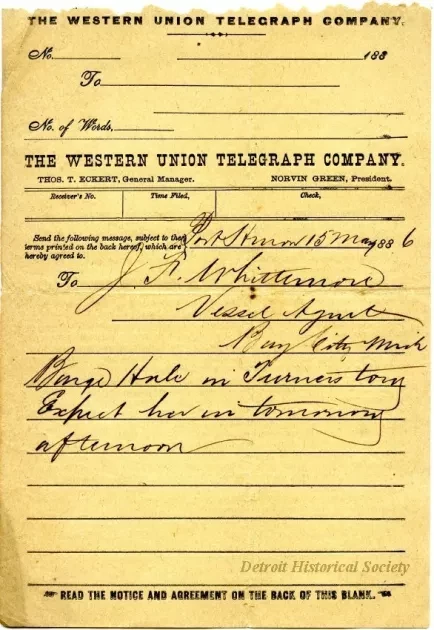 THE WESTERN UNION TELEGRAPH COMPANY.
No. 188
To
No. of Words,
THE WESTERN UNION TELEGRAPH COMPANY.
THOS. T. ECKERT, General Manager. NORVIN GREEN, President.
Receiver's No. Time Filed, Check,
Send the following message, subject to the
terms printed on the back hereof, which are
hereby agreed to.
Port Huron 15 May 1886
To J. R. Whittemore
Vessel Agent
Bay City Mich
Barge Hale in Turners tow
Expect her in tomorrow
afternoon
Detroit Historical Society
READ THE NOTICE AND AGREEMENT ON THE BACK OF THIS BLANK.